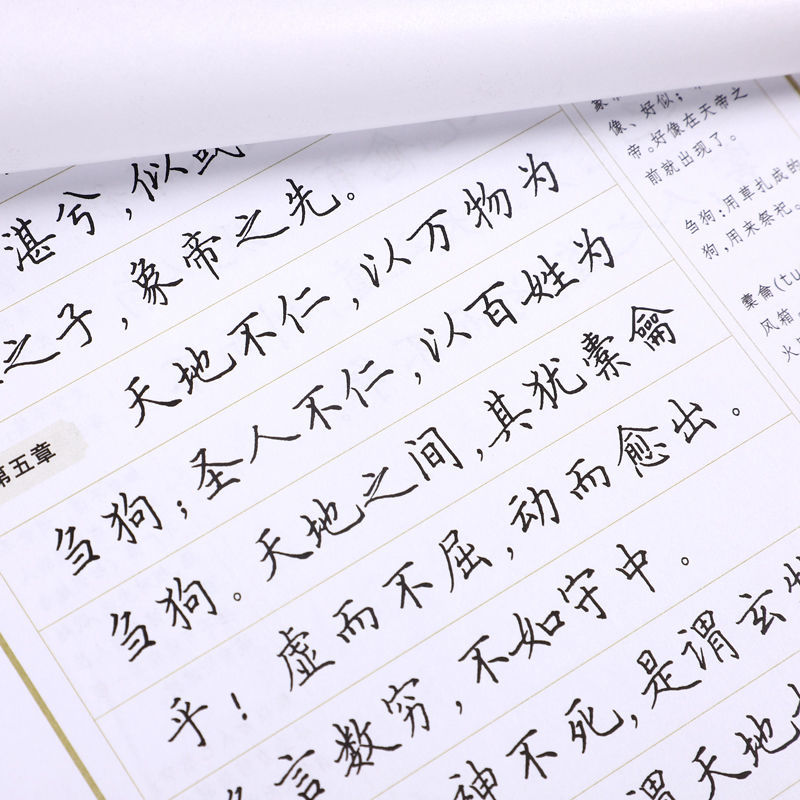 湛兮，似或
之子，象帝之先。
天地不仁，以万物为
刍狗；圣人不仁，以百姓为
刍狗。天地之间，其犹橐龠
乎！虚而不屈，动而愈出。
言数穷，不如守中。
神不死，是谓玄
谓天地
第五章
像、好似；
帝。好像在天帝之
前就出现了。
刍狗：用草扎成的
狗，用来祭祀。
橐龠(tu
风箱
火